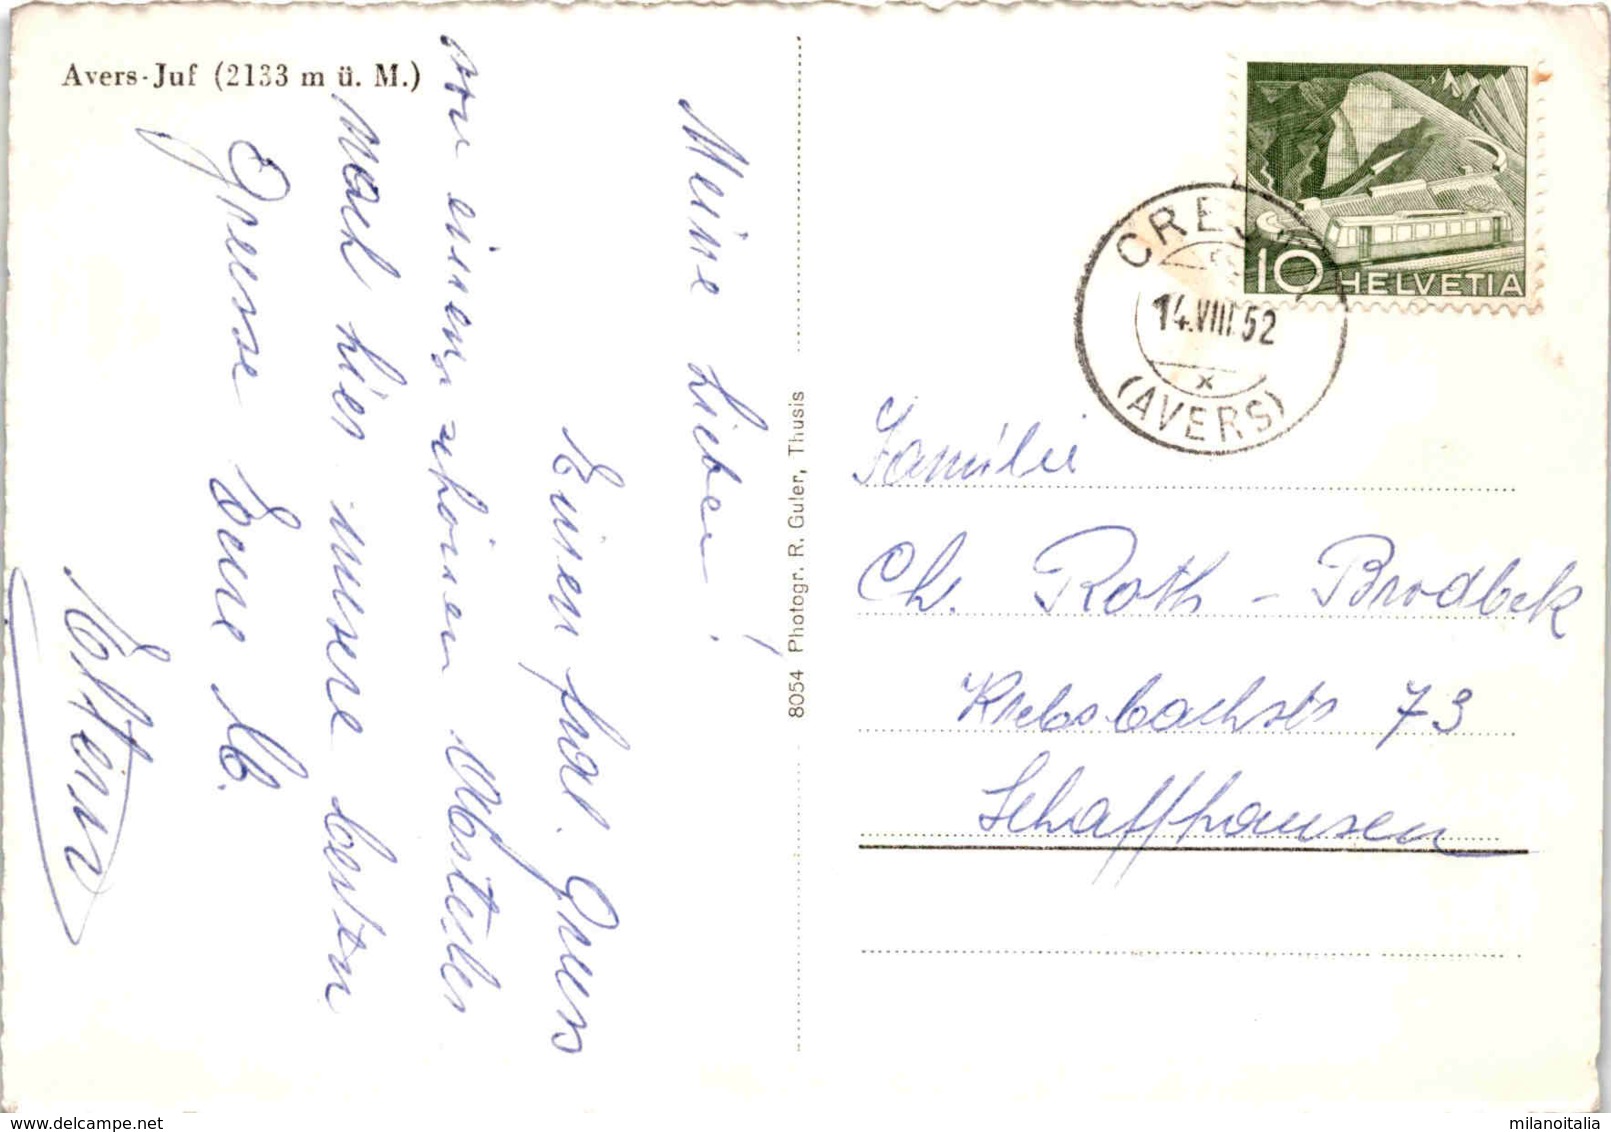 Avers-Juf (2133 m ü. M.)
Meine Lieben!
Einen frdl. Gruss
von einem schönen
nach hier unsere besten
Grüsse Eure M.
8054 Photogr. R. Guler, Thusis
10 HELVETIA
CREST
14.VIII.52
x
(AVERS)
Familie
Ch. Roth - Brodbek
Krebsbachstr 73
Schaffhausen
milanoitalia